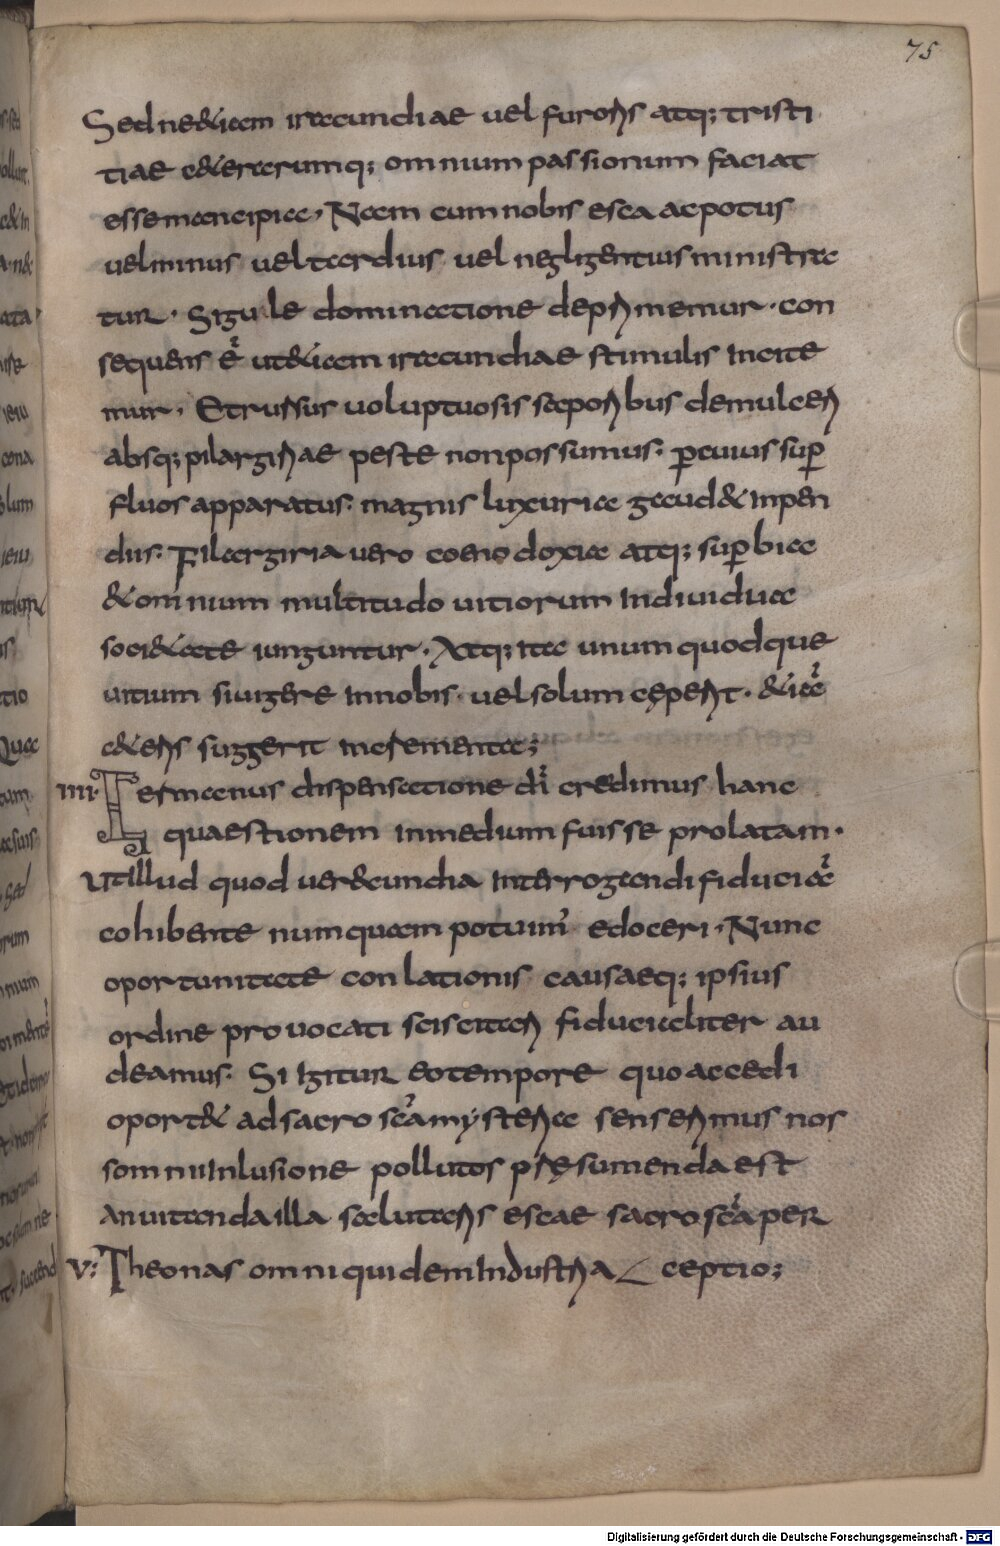 75
Sed ne&iam iracundiae uel furoris atq; tristi
tiae c&erarumq; omnium passionum faciat
esse mancipia, Nam cum nobis esca ac potus
uel minus uel tardius uel neglegentius ministra
tur. Si gulae dominatione deprimemur. con
sequens ē ut&iam iracundiae stimulis incite
mur, Et rursus uoluptuosis saporibus demulceri
absq; pilargiriae peste non possumus. p̄ cuius sup̄
fluos apparatus. magnis luxuria gaud& inpen
diis. Filargiria uero coeno doxiae atq; sup̄biae
&omnium multitudo uitiorum indiuidua
soci&ate iunguntur. Atq; ita unum quodque
uitium si uigere in nobis. uel solum cęperit. &iā
c&eris suggerit incrementa;
IIII. Germanus dispensatione dī credimus hanc
quaestionem in medium fuisse prolatam.
Ut illud quod uerecundia interrogandi fiduciā
cohibente numquam potuim̄ edoceri. Nunc
oportunitate conlationis causaeq; ipsius
ordine prouocati sciscitari fiducialiter au
deamus. Si igitur eo tempore quo accedi
oport& ad sacro scā mysteria senserimus nos
somnii inlusione pollutos pręsumenda est
an uitanda illa salutaris escae sacroscā per
V: Theonas omni quidem industria ceptio;
Digitalisierung gefördert durch die Deutsche Forschungsgemeinschaft - DFG